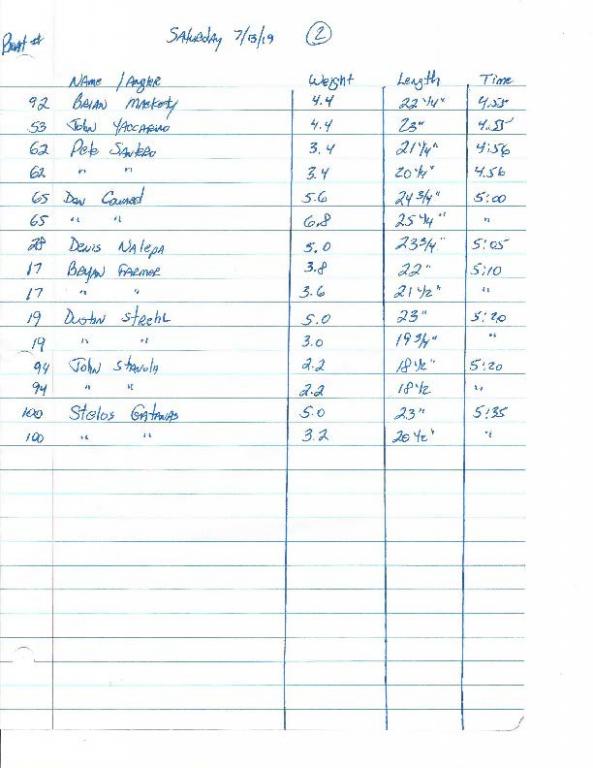 Saturday 7/13/19 2
Boat #
Name / Angler Weight Length Time
92 Brian 4.4 22 1/4" 4:55
53 John Yaccarino 4.4 23" 4:55
62 Pete Santoro 3.4 21 1/4" 4:56
62 " " 3.4 20 4.56
65 Dan 5.6 24 3/4" 5:00
65 " " 6.8 25 "
28 Denis Nalepa 5.0 23 3/4" 5:05
17 Bryan Farmer 3.8 22" 5:10
17 " " 3.6 21 1/2" "
19 Dustin Strehl 5.0 23" 5:20
19 " " 3.0 19 3/4" "
94 John 2.2 18 1/2" 5:20
94 " " 2.2 18 1/2 "
100 Stelos Gatanas 5.0 23" 5:35
100 " " 3.2 20 1/2" "